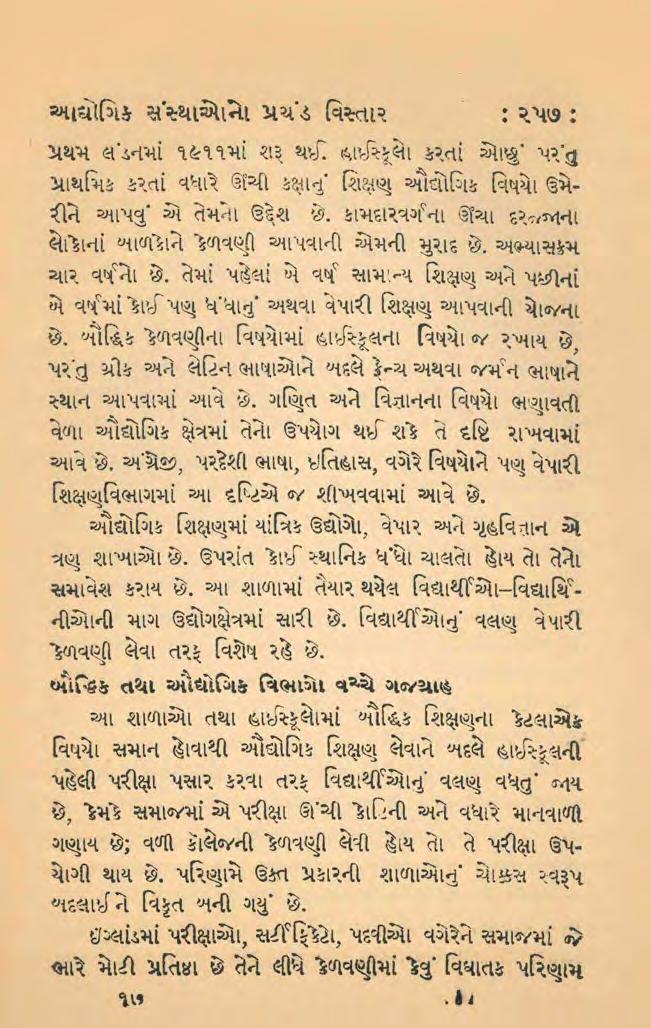 આદ્યોગિક સંસ્થાઓનો પ્રચંડ વિસ્તાર : ૨૫૭ :
પ્રથમ લંડનમાં ૧૯૧૧માં શરૂ થઈ. હાઈસ્કૂલો કરતાં ઓછું પરંતુ
પ્રાથમિક કરતાં વધારે ઊંચી કક્ષાનું શિક્ષણ ઔદ્યોગિક વિષયો ઉમે-
રીને આપવું એ તેમનો ઉદ્દેશ છે. કામદારવર્ગના ઊંચા દરજ્જાના
લોકોનાં બાળકોને કેળવણી આપવાની એમની મુરાદ છે. અભ્યાસક્રમ
ચાર વર્ષનો છે. તેમાં પહેલાં બે વર્ષ સામાન્ય શિક્ષણ અને પછીનાં
બે વર્ષમાં કોઈ પણ ધંધાનું અથવા વેપારી શિક્ષણ આપવાની યોજના
છે. બૌદ્ધિક કેળવણીના વિષયોમાં હાઈસ્કૂલના વિષયો જ રખાય છે,
પરંતુ ગ્રીક અને લેટિન ભાષાઓને બદલે ફ્રેન્ચ અથવા જર્મન ભાષાને
સ્થાન આપવામાં આવે છે. ગણિત અને વિજ્ઞાનના વિષયો ભણાવતી
વેળા ઔદ્યોગિક ક્ષેત્રમાં તેનો ઉપયોગ થઈ શકે તે દૃષ્ટિ રાખવામાં
આવે છે. અંગ્રેજી, પરદેશી ભાષા, ઇતિહાસ, વગેરે વિષયોને પણ વેપારી
શિક્ષણવિભાગમાં આ દૃષ્ટિએ જ શીખવવામાં આવે છે.
ઔદ્યોગિક શિક્ષણમાં યાંત્રિક ઉદ્યોગો, વેપાર અને ગૃહવિજ્ઞાન એ
ત્રણ શાખાઓ છે. ઉપરાંત કોઈ સ્થાનિક ધંધો ચાલતો હોય તો તેનો
સમાવેશ કરાય છે. આ શાળામાં તૈયાર થયેલ વિદ્યાર્થીઓ–વિદ્યાર્થિ-
નીઓની માગ ઉદ્યોગક્ષેત્રમાં સારી છે. વિદ્યાર્થીઓનું વલણ વેપારી
કેળવણી લેવા તરફ વિશેષ રહે છે.
બૌદ્ધિક તથા ઔદ્યોગિક વિભાગો વચ્ચે ગજગ્રાહ
આ શાળાઓ તથા હાઈસ્કૂલોમાં બૌદ્ધિક શિક્ષણના કેટલાએક
વિષયો સમાન હોવાથી ઔદ્યોગિક શિક્ષણ લેવાને બદલે હાઈસ્કૂલની
પહેલી પરીક્ષા પસાર કરવા તરફ વિદ્યાર્થીઓનું વલણ વધતું જાય
છે, કેમકે સમાજમાં એ પરીક્ષા ઊંચી કોટિની અને વધારે માનવાળી
ગણાય છે; વળી કૉલેજની કેળવણી લેવી હોય તો તે પરીક્ષા ઉપ-
યોગી થાય છે. પરિણામે ઉક્ત પ્રકારની શાળાઓનું ચોક્કસ સ્વરૂપ
બદલાઈને વિકૃત બની ગયું છે.
ઇંગ્લાંડમાં પરીક્ષાઓ, સર્ટીફિકેટો, પદવીઓ વગેરેને સમાજમાં જે
ભારે મોટી પ્રતિષ્ઠા છે તેને લીધે કેળવણીમાં કેવું વિઘાતક પરિણામ
૧૭